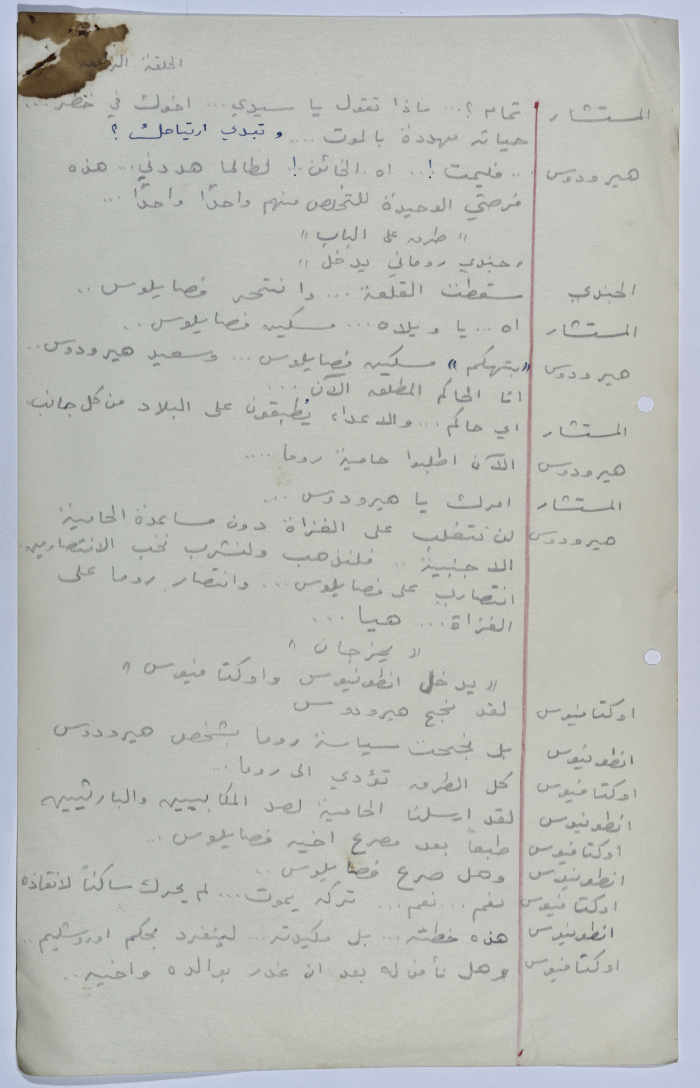 الحلقة
المستشار تمام ؟... ماذا تقول يا سيدي... اخوك في خطر...
حياته مهددة بالموت .... وتبدي ارتياحك ؟
هيرودوس ... فليمت !... اه الخائن !. لطالما هددني... هذه
فرصتي الوحيدة للتخلص منهم واحدًا واحدًا ...
" طرق على الباب "
" جندي روماني يدخل "
الجندي سقطت القلعة ... وانتحر فصايلوس ..
المستشار اه .. يا ويلاه ... مسكين فصايلوس ..
هيرودوس "بتهكم" مسكين فصايلوس ... وسعيد هيرودوس..
انا الحاكم المطلق الآن ....
المستشار اي حاكم ... والاعداء يُطبقون على البلاد من كل جانب.
هيرودوس الآن اطلبوا حامية روما ....
المستشار امرك يا هيرودوس ...
هيرودوس لن نتغلب على الغزاة دون مساعدة الحامية
الاجنبية .. فلنذهب ولنشرب نخب الانتصارين.
انتصاري على فصايلوس ... وانتصار روما على
الغزاة ... هيا ...
" يخرجان "
" يدخل انطونيوس واوكتافيوس "
اوكتافيوس لقد نجح هيرودوس
انطونيوس بل نجحت سياسة روما بشخص هيرودوس
اوكتافيوس كل الطرق تؤدي الى روما ...
انطونيوس لقد ارسلنا الحامية لصد المكابيين والبارثيين
اوكتافيوس طبعاً بعد مصرع اخيه فصايلوس ..
انطونيوس وهل صرع فصايلوس ..
اوكتافيوس نعم ... نعم ... تركه يموت ... لم يحرك ساكناً لانقاذه
انطونيوس هذه خطته ... بل مكيدته ... لينفرد بحكم اورشليم ..
اوكتافيوس وهل نأمن له بعد ان غدر بوالده واخيه ..